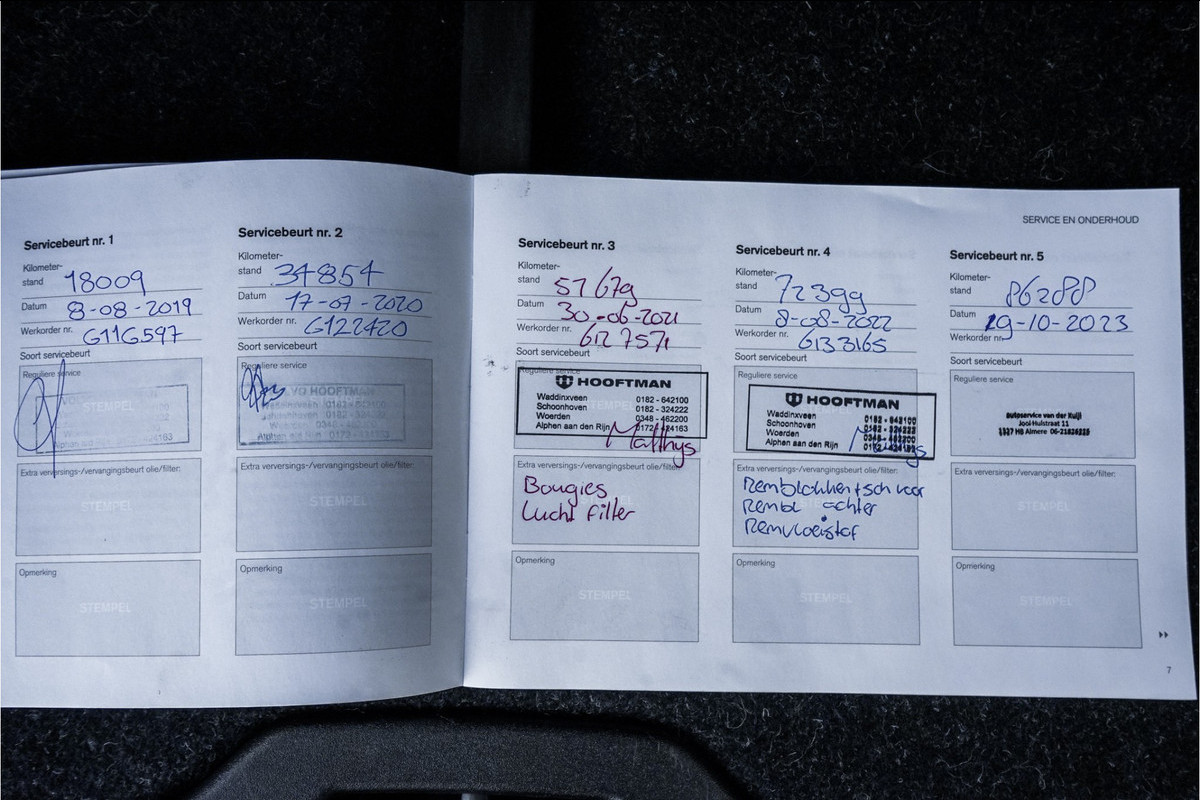 SERVICE EN ONDERHOUD
Servicebeurt nr. 1
Kilometer-
stand 18009
Datum 8-08-2019
Werkorder nr. G116597
Soort servicebeurt
Reguliere service
STEMPEL
Extra verversings-/vervangingsbeurt olie/filter:
STEMPEL
Opmerking
STEMPEL
Servicebeurt nr. 2
Kilometer-
stand 34854
Datum 17-07-2020
Werkorder nr. G122420
Soort servicebeurt
Reguliere service
HOOFTMAN
Extra verversings-/vervangingsbeurt olie/filter:
STEMPEL
Opmerking
STEMPEL
Servicebeurt nr. 3
Kilometer-
stand 57679
Datum 30-06-2021
Werkorder nr. 6127571
Soort servicebeurt
Reguliere service
HOOFTMAN
Waddinxveen 0182 - 642100
Schoonhoven 0182 - 324222
Woerden 0348 - 462200
Alphen aan den Rijn 0172 - 424163
Matthijs
Extra verversings-/vervangingsbeurt olie/filter:
Bougies
Lucht filter
Opmerking
STEMPEL
Servicebeurt nr. 4
Kilometer-
stand 72399
Datum 8-08-2022
Werkorder nr. 6133165
Soort servicebeurt
Reguliere service
HOOFTMAN
Waddinxveen 0182 - 642100
Schoonhoven 0182 - 324222
Woerden 0348 - 462200
Alphen aan den Rijn
Extra verversings-/vervangingsbeurt olie/filter:
Remblokken + sch voor
Rembl achter
Remvloeistof
Opmerking
STEMPEL
Servicebeurt nr. 5
Kilometer-
stand 86288
Datum 19-10-2023
Werkorder nr.
Soort servicebeurt
Reguliere service
autoservice van der Kuijl
Jool Hulstraat 11
1327 HB Almere
Extra verversings-/vervangingsbeurt olie/filter:
STEMPEL
Opmerking
STEMPEL
7